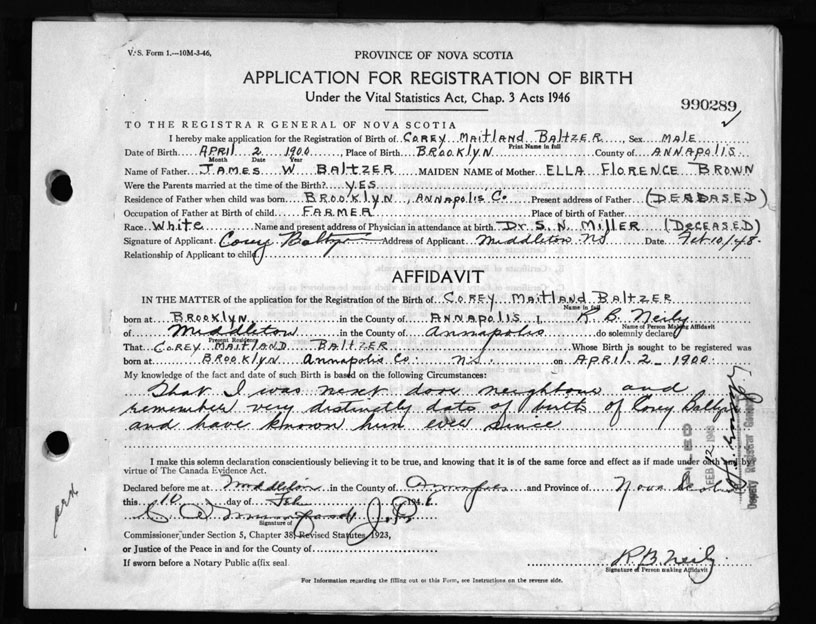 V. S. Form 1.—10M-3-46.
PROVINCE OF NOVA SCOTIA
APPLICATION FOR REGISTRATION OF BIRTH
Under the Vital Statistics Act, Chap. 3 Acts 1946
990289
TO THE REGISTRAR GENERAL OF NOVA SCOTIA
I hereby make application for the Registration of Birth of COREY MAITLAND BALTZER, Sex MALE
Print Name in full
Date of Birth APRIL 2 1900 Place of Birth BROOKLYN County of ANNAPOLIS
Month Date Year
Name of Father JAMES W BALTZER MAIDEN NAME of Mother ELLA FLORENCE BROWN
Were the Parents married at the time of the Birth? YES
Residence of Father when child was born BROOKLYN, ANNAPOLIS Co. Present address of Father (DECEASED)
Occupation of Father at Birth of child FARMER Place of birth of Father
Race White Name and present address of Physician in attendance at birth Dr. S. N. MILLER (DECEASED)
Signature of Applicant Corey Baltzer Address of Applicant Middleton NS Date Feb 10/48.
Relationship of Applicant to child
AFFIDAVIT
IN THE MATTER of the application for the Registration of the Birth of COREY MAITLAND BALTZER
Name in full
born at BROOKLYN in the County of ANNAPOLIS I, R. B. Neily
Name of Person Making Affidavit
of Middleton in the County of Annapolis do solemnly declare
Present Residence
That COREY MAITLAND BALTZER Whose Birth is sought to be registered was
born at BROOKLYN Annapolis Co. N.S. on APRIL 2 - 1900.
My knowledge of the fact and date of such Birth is based on the following Circumstances:
That I was next door neighbour and
remember very distinctly date of birth of Corey Baltzer
and have known him ever since
FEB 12 1948
Deputy Registrar General
I make this solemn declaration conscientiously believing it to be true, and knowing that it is of the same force and effect as if made under oath by
virtue of The Canada Evidence Act.
Declared before me at Middleton in the County of Annapolis and Province of Nova Scotia
this 10 day of Feb 194
J. P.
Signature of
Commissioner under Section 5, Chapter 38, Revised Statutes, 1923,
or Justice of the Peace in and for the County of
If sworn before a Notary Public affix seal
R. B. Neily
Signature of Person making Affidavit
For Information regarding the filling out of this Form, see Instructions on the reverse side.